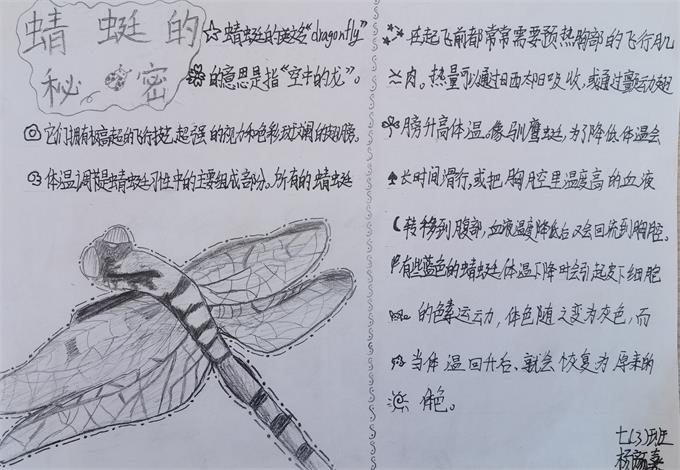 蜻蜓的
秘密
蜻蜓的英文"dragonfly"
的意思是指"空中的龙"。
它们拥有极高超的飞行技艺,超强的视力和色彩斑斓的翅膀。
体温调节是蜻蜓习性中的主要组成部分。所有的蜻蜓
在起飞前都常常需要预热胸部的飞行肌
肉。热量可以通过日晒太阳吸收,或通过颤动翅
膀升高体温。像马川鹰蜓,为了降低体温会
长时间滑行,或把胸腔里温度高的血液
转移到腹部,血液温度降低后又会回流到胸腔。
有些蓝色的蜻蜓体温下降时会引起皮下细胞
的色素运动,体色随之变为灰色,而
当体温回升后、就会恢复为原来的
体色。
七(3)班
杨